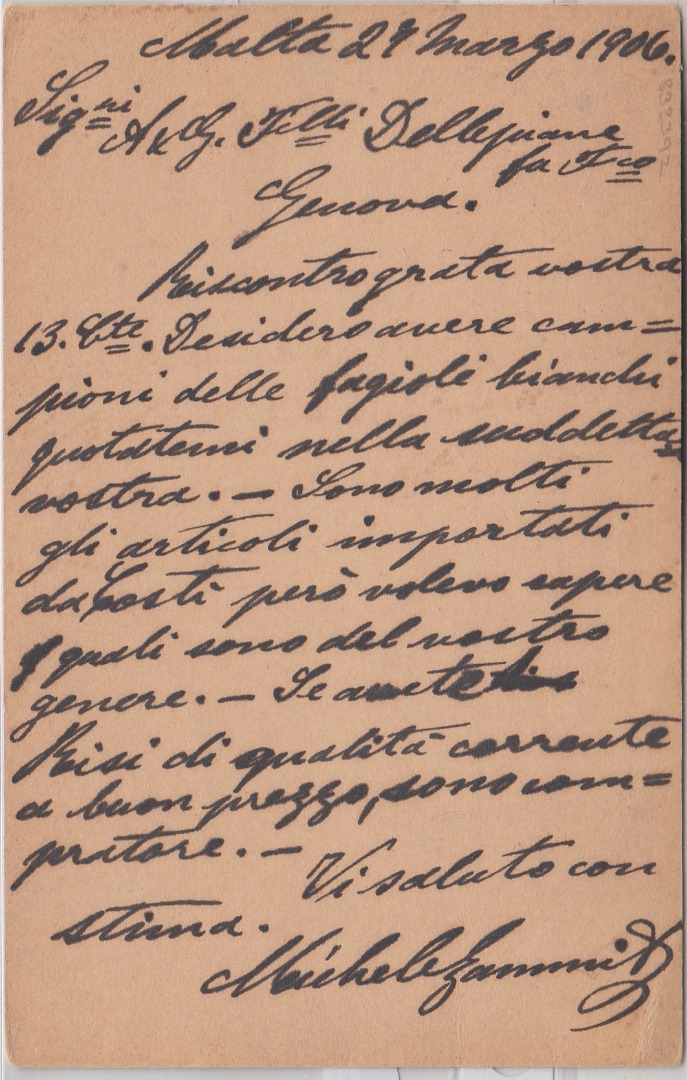 Malta 27 Marzo 1906.
Sigri
A & G. Flli Dellepiane
fu Fco
Genova.
Riscontro grata vostra
13. Cte. Desidero avere cam=
pioni delle fagioli bianchi
quotatemi nella suddetta
vostra. — Sono molti
gli articoli importati
da Costì però volevo sapere
quali sono del vostro
genere. — Se avete
Risi di qualità corrente
a buon prezzo, sono com=
pratore. —
Vi saluto con
stima.
Michele Zammit